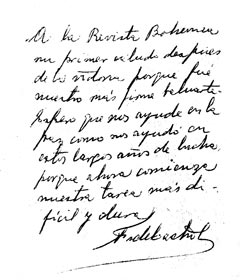 A la Revista Bohemia
mi primer saludo despues
de la victoria porque fué
nuestro más firme baluarte.
Espero que nos ayude en la
paz como nos ayudó en
estos largos años de lucha
porque ahora comienza
nuestra tarea más di-
fícil y dura.
Fidel Castro